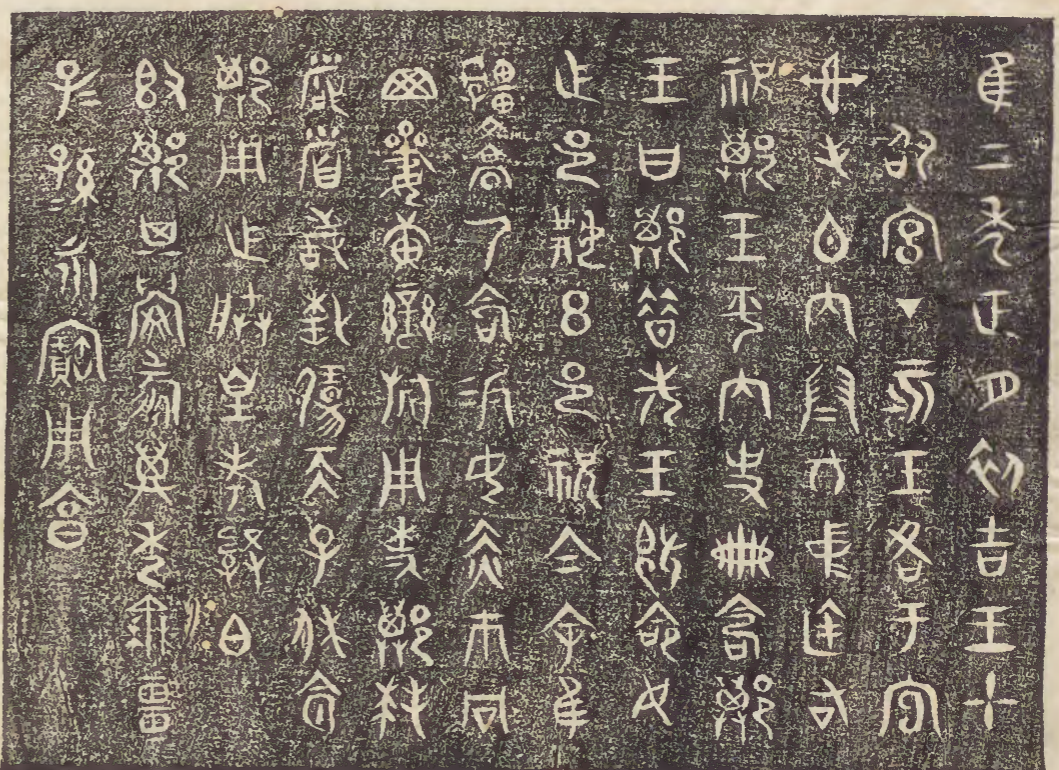 隹二年正月初吉王才
邵宮丁亥王各于宣
射毛白內門立中廷右
祝𨟻王乎內史冊命𨟻
王曰𨟻昔先王既命女
乍邑五邑祝今余隹
乃命易女赤巿冋
黃䜌旂用事𨟻拜
首敢對揚天子休命
𨟻用乍朕皇考龏白
𨟻其眉壽萬年無疆
子孫永寶用享